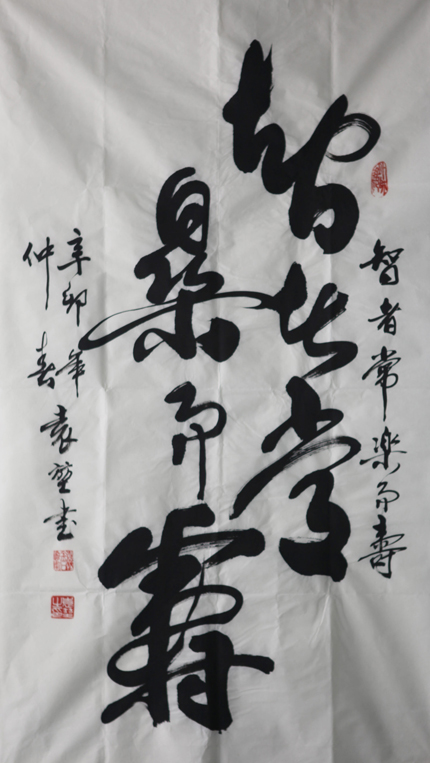 智者常樂而壽
智者常
樂而壽
辛卯年
仲春袁堃书